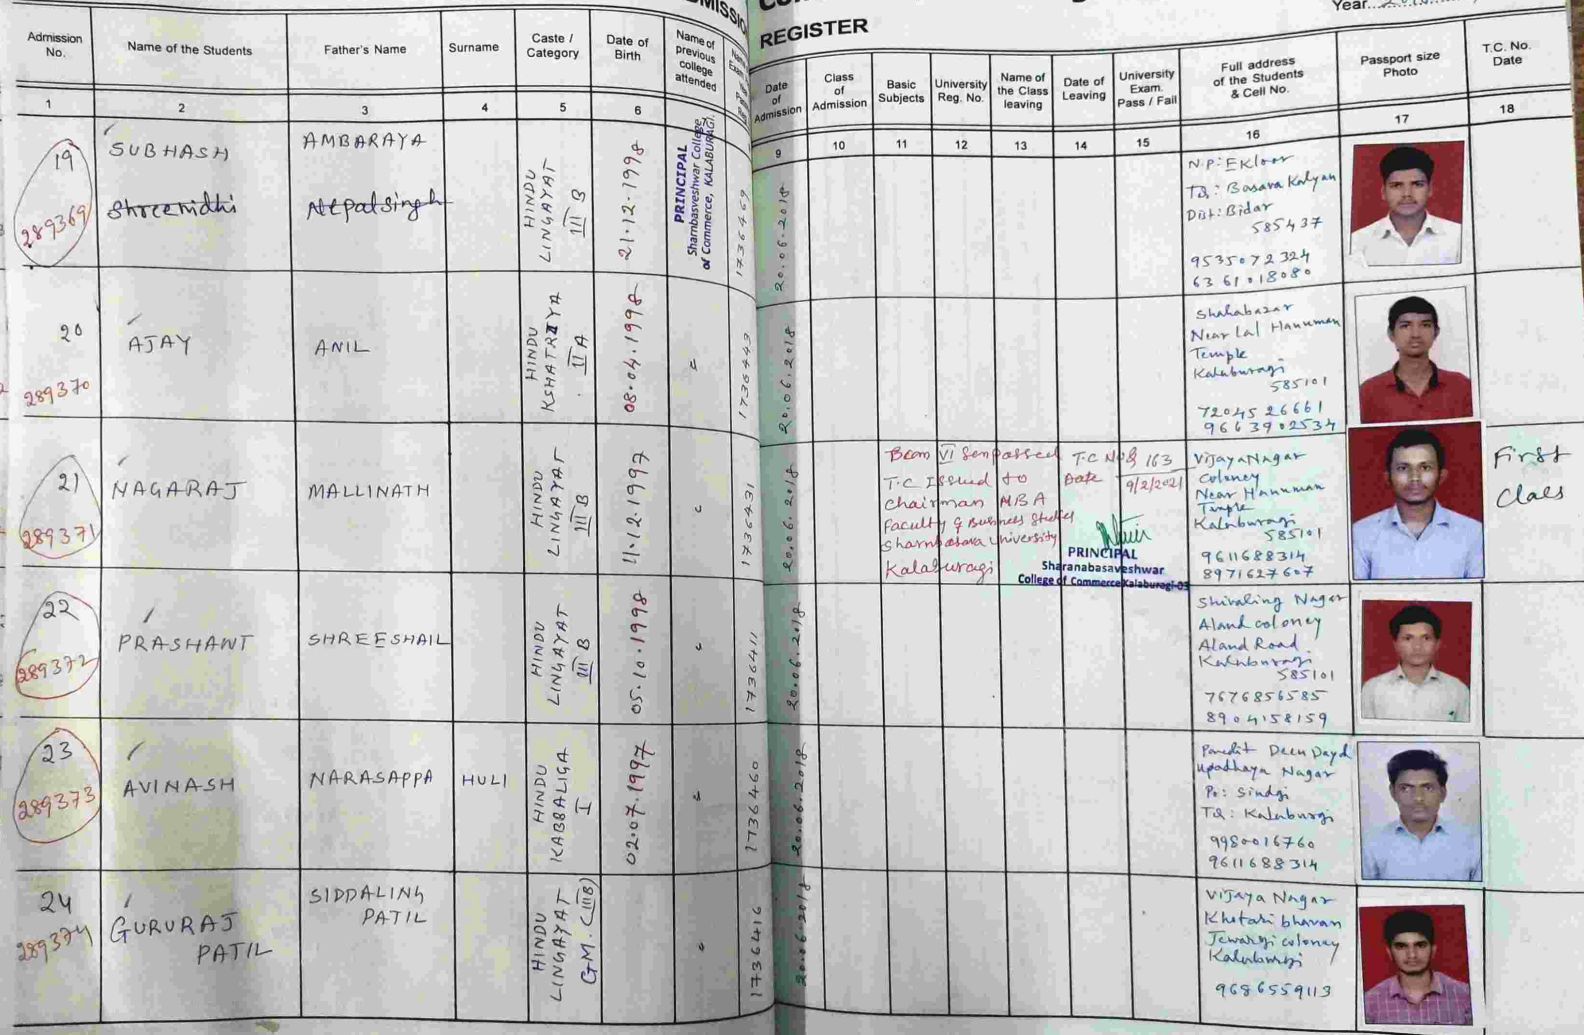 REGISTER
Year
Admission No.
Name of the Students
Father's Name
Surname
Caste / Category
Date of Birth
Name of previous college attended
Date of Admission
Class of Admission
Basic Subjects
University Reg. No.
Name of the Class leaving
Date of Leaving
University Exam. Pass / Fail
Full address of the Students & Cell No.
Passport size Photo
T.C. No. Date
1
2
3
4
5
6
9
10
11
12
13
14
15
16
17
18
19
289369
SUBHASH
Shreenidhi
AMBARAYA
Nepalsingh
HINDU
LINGAYAT
III B
21.12.1998
PRINCIPAL
Sharnbasveshwar College
of Commerce, KALABURAGI.
1736469
20.06.2018
N.P: Ekloor
TQ: Basava Kalyan
Dist: Bidar
585437
9535072324
6361018080
20
289370
AJAY
ANIL
HINDU
KSHATRIYA
II A
08.04.1998
"
1736443
20.06.2018
Shahabazar
Near Lal Hanuman
Temple
Kalaburagi
585101
7204526661
9663902534
21
289371
NAGARAJ
MALLINATH
HINDU
LINGAYAT
III B
11.12.1997
"
1736431
20.06.2018
Bcom VI Sem passed
T.C Issued to
Chairman MBA
Faculty of Business Studies
Sharnbasava University
Kalaburagi
T.C No 163
Date 9/2/2021
PRINCIPAL
Sharanabasaveshwar
College of Commerce Kalaburagi-03
VijayaNagar
Coloney
Near Hanuman
Temple
Kalaburagi
585101
9611688314
8971627607
First
Class
22
289372
PRASHANT
SHREESHAIL
HINDU
LINGAYAT
III B
05.10.1998
"
1736411
20.06.2018
Shivaling Nagar
Aland coloney
Aland Road
Kalaburagi
585101
7676856585
8904158159
23
289373
AVINASH
NARASAPPA
HULI
HINDU
KABBALIGA
I
02.07.1997
"
1736460
20.06.2018
Pandit Deen Dayal
upadhaya Nagar
Po: Sindgi
TQ: Kalaburgi
9980016760
9611688314
24
289374
GURURAJ
PATIL
SIDDALING
PATIL
HINDU
LINGAYAT
GM. (III B)
"
1736416
20.06.2018
Vijaya Nagar
Khutari bhavan
Jewargi coloney
Kalaburgi
9686559113